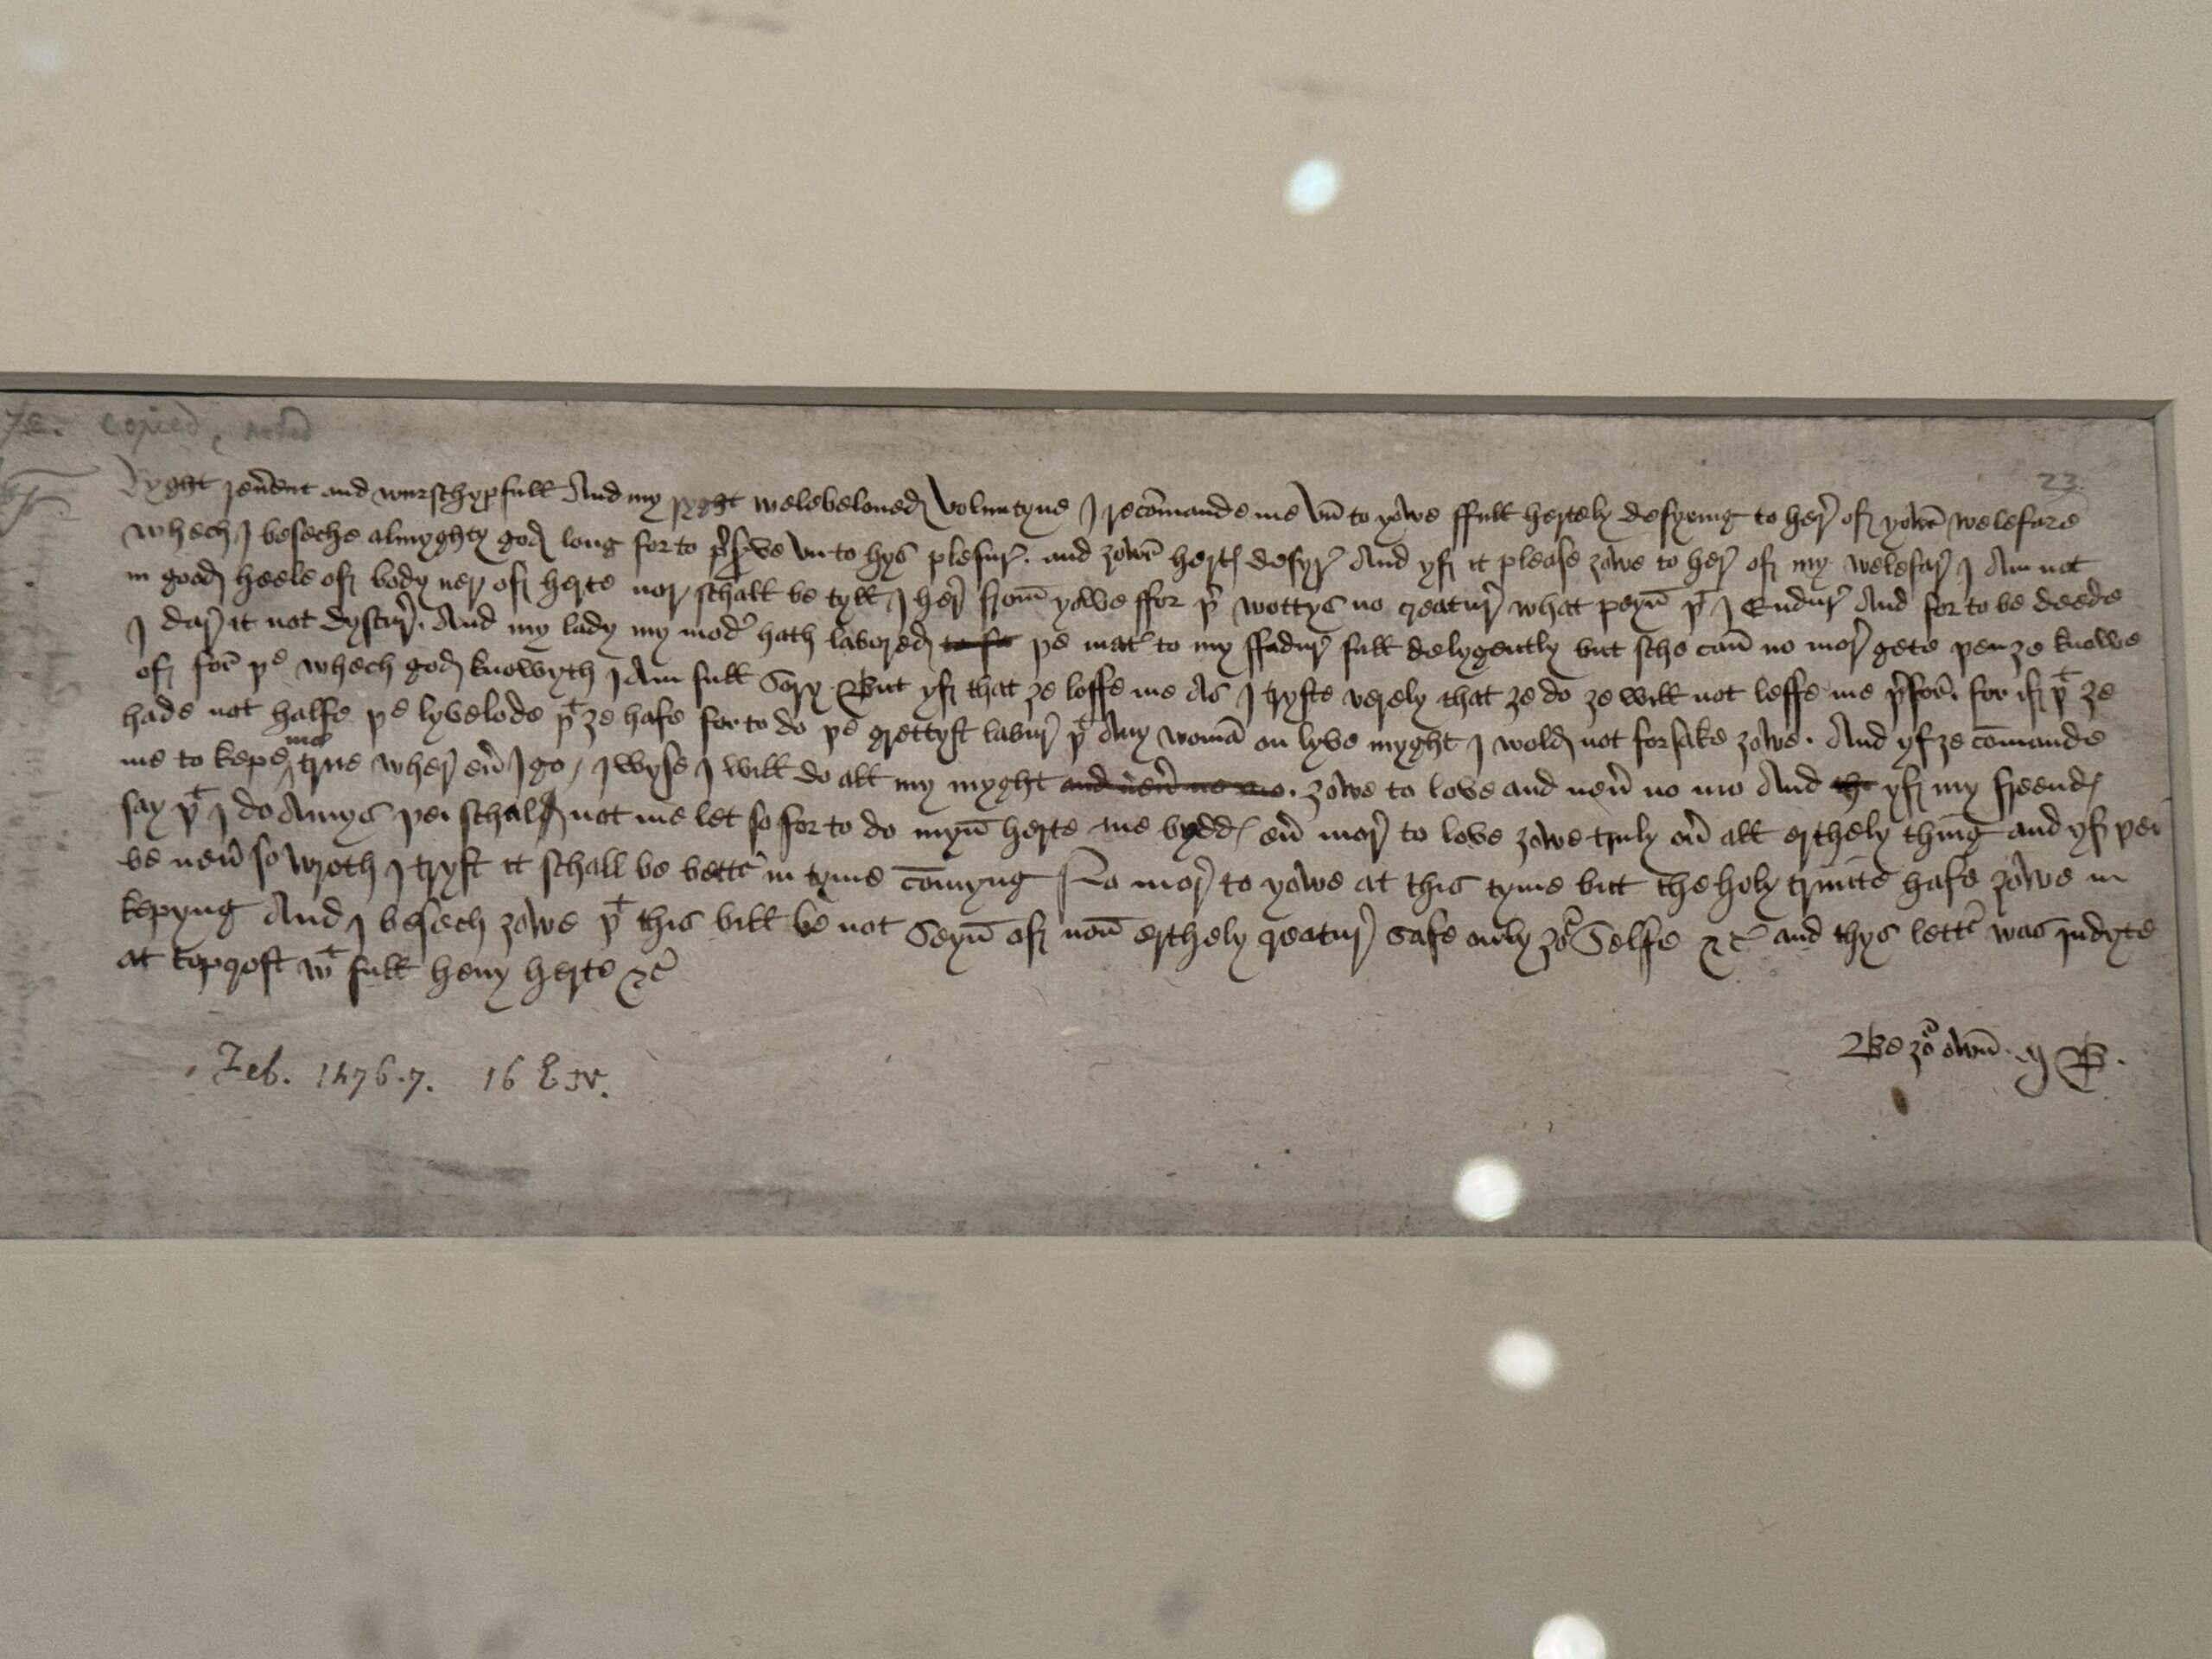 copied, noted
23.
Ryght reu̅ent and wurschypfull And my ryght welebeloued Voluntyne J reco̅mande me vn̅ to yowe ffull hertely desyring to her̛ off yowr̅ welefare
whech J beseche almyghty god long for to p̅s̛ve vn to hys plesur̛. and ȝowr̅ hertꝭ desyr̛ And yff it please ȝowe to her̛ off my welefar̛ J Am not
in good heele off body ner off herte nor schall be tyll J her̛ from̅ yowe ffor þr̛ wottys no creatur̛ what peyn̅ þt J Endur̛ And for to be deede
J dar̛ it not dyscur̛. And my lady my mod̛ hath labored ~~to ffe~~ þe mat̛ to my ffadur̛ full delygently but sche can̅ no mor̛ gete þen ȝe knowe
off for̅ þe whech god knowyth J Am full Sory. But yff that ȝe loffe me As J tryste verely that ȝe do ȝe will not leffe me þr̛for̅. for iff þt ȝe
hade not halfe þe lyvelode þt ȝe hafe for to do þe grettyst labur̛ þt Any woma̅ on lyve myght J wold not forsake ȝowe. And yf ȝe co̅mande
me to kepe me true wher̛ eu̅ J go / J wyse J will do all my myght ~~and neu̅ no mo~~. ȝowe to love and neu̅ no mo And ~~th~~ yff my freendꝭ
say þt J do Amys þei schall not me let so for to do myn̅ herte me byddꝭ eu̅ mor̛ to love ȝowe truly ou̅ all erthely thing̅ and yff þei
be neu̅ so wroth J tryst it schall be bett̛ in tyme co̅myng No mor̛ to yowe at this tyme but the holy trinite̅ hafe ȝowe in
kepyng And J besech ȝowe þt this bill be not Seyn̅ off non̅ erthely creatur̛ safe only ȝor Selffe &c̅ and thys lett̛ was indyte
at topcroft wt full heuy herte &c̅
Be ȝor own̅. M B.
Feb. 1476.7. 16 E IV.